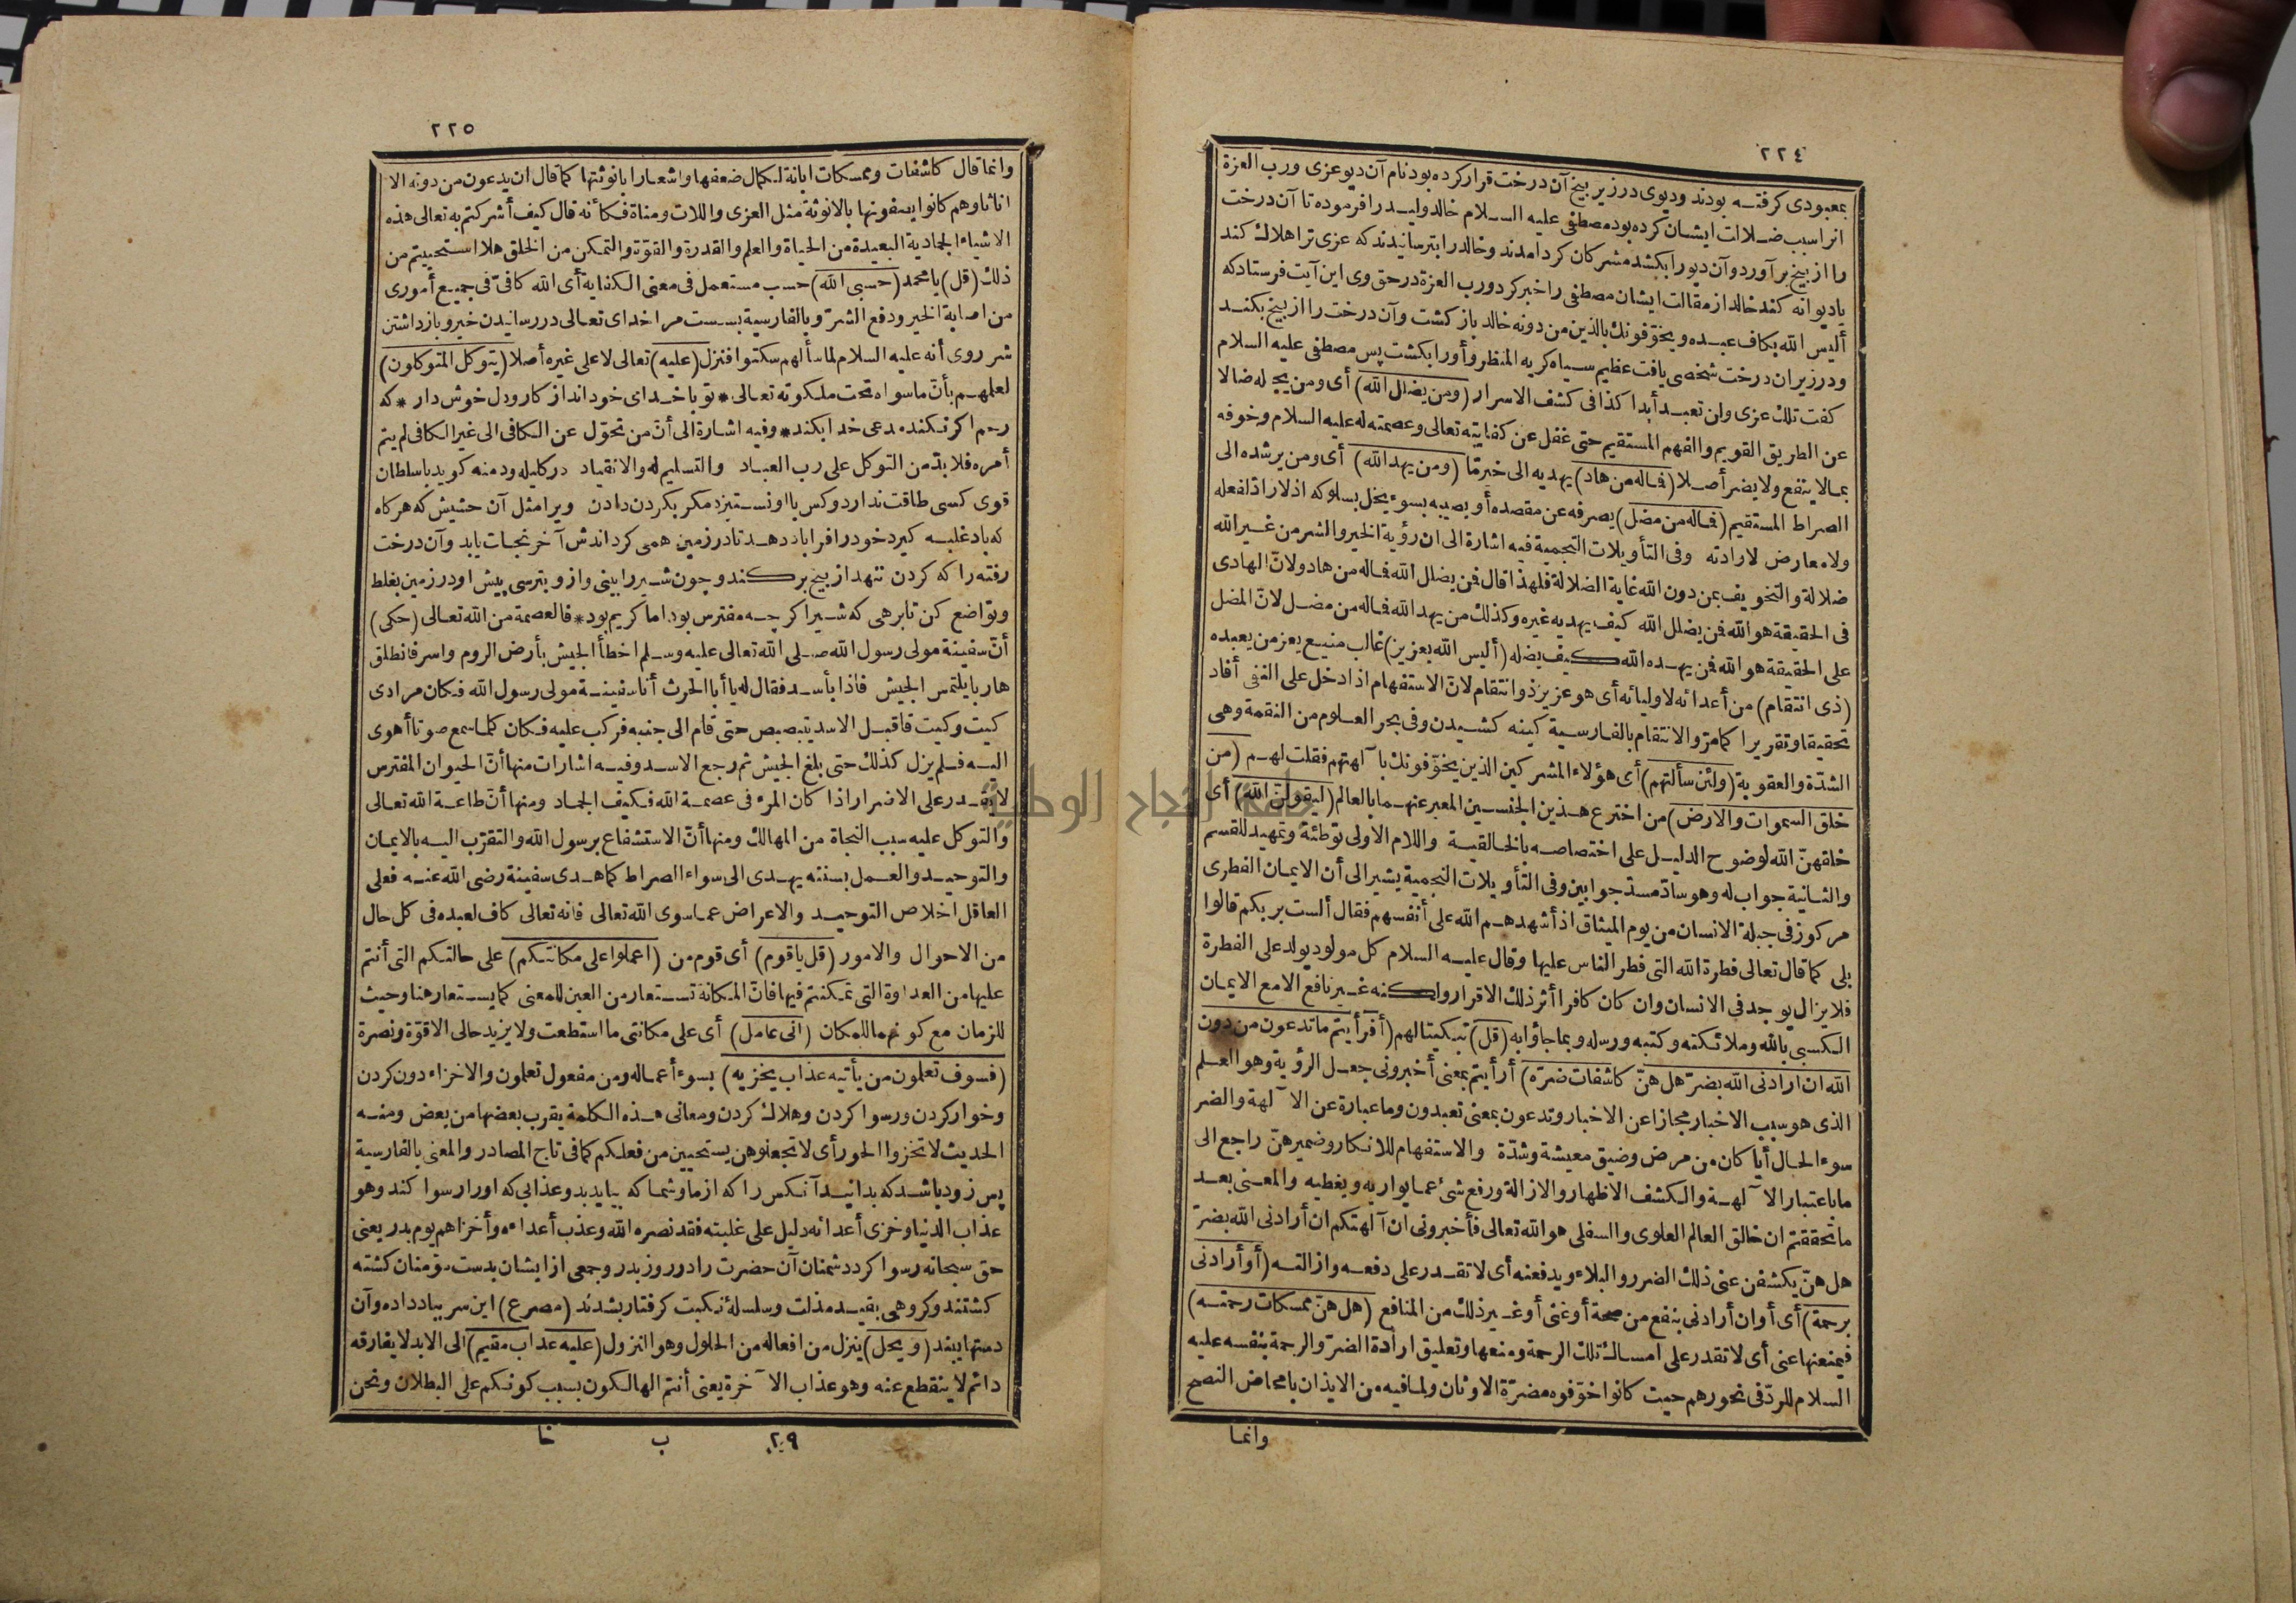 ٢٢٤
بمعبودى كرفتــه بودند وديوى درزير بيخ آن درخت قرار كرده بود نام آن ديو عزى ورب العزة
انرا سبب ضــلالت ايشان كرده بود مصطفى عليه الســلام خالد وليــد را فرموده تا آن درخت
را از بيخ بر آورد وآن ديو را بكشد مشركان كرد امدند وخالد را بترسانيدند كه عزى ترا هلاك كند
يا ديوانه كند خالد از مقالت ايشان مصطفى را خبر كرد ورب العزة در حق وى اين آيت فرستاد كه
أليس الله بكاف عبــده ويخوّفونك بالذين من دونه خالد باز كشت وآن درخت را از بيخ بكنــد
ودر زير ان درخت شخصى يافت عظيم ســياه كريه المنظر وأورا بكشت پس مصطفى عليه السلام
كفت تلك عزى ولن تعبــد أبدا كذا فى كشف الاسرار (ومن يضلل الله) أى ومن يجعله ضالا
عن الطريق القويم والفهم المستقيم حتى غفل عن كفايته تعالى وعصمته له عليه السلام وخوفه
بمالا ينفع ولا يضر أصــلا (فماله من هاد) يهديه الى خير مّا (ومن يهد الله) أى ومن يرشده الى
الصراط المستقيم (فماله من مضل) يصرفه عن مقصده أو يصيبه بسوء يخل بسلوكه اذ لا رادّ لفعله
ولا معارض لارادته وفى التأويلات النجمية فيه اشارة الى ان رؤية الخير والشر من غــير الله
ضلالة والتخويف بمن دون الله غاية الضلالة فلهذا قال فمن يضلل الله فماله من هاد ولانّ الهادى
فى الحقيقة هو الله فمن يضلل الله كيف يهديه غيره وكذلك من يهد الله فماله من مضــل لانّ المضل
على الحقيقة هو الله فمن يهــده الله كيف يضله (أليس الله بعزيز) غالب منيــع يعز من يعبده
(ذى انتقام) من أعدائه لاوليائه أى هو عزيز ذو انتقام لانّ الاستفهام اذا دخل على النفى أفاد
تحقيقا وتقريرا كما مرّ والانتقام بالفارســية كينه كشــيدن وفى بحر العــلوم من النقمة وهى
الشدّة والعقوبة (ولئن سألتهم) أى هؤلاء المشركين الذين يخوّفونك بآلهتهم فقلت لهــم (من
خلق السموات والارض) من اخترع هــذين الجنســين المعبر عنهــما بالعالم (ليقولنّ الله) أى
خلقهنّ الله لوضوح الدليــل على اختصاصــه بالخالقيــة واللام الاولى توطئة وتمهيد للقسم
والثــانية جواب له وهو سادّ مسدّ جوابين وفى التأويلات النجمية يشير الى أن الايمــان الفطرى
مركوز فى جبلة الانسان من يوم الميثاق اذ أشهدهــم الله على أنفسهم فقال ألست بربكم قالوا
بلى كما قال تعالى فطرة الله التى فطر الناس عليها وقال عليــه السلام كل مولود يولد على الفطرة
فلا يزال يوجد فى الانسان وان كان كافرا أثر ذلك الاقرار ولكنه غــير نافع الا مع الايمــان
الكسبى بالله وملائكته وكتبه ورسله وبما جاؤا به (قل) تبكيتا لهم (أفرأيتم ما تدعون من دون
الله ان ارادنى الله بضرّ هل هنّ كاشفات ضرّه) أرأيتم بمعنى أخبرونى جعــل الرؤية وهو العــلم
الذى هو سبب الاخبار مجازا عن الاخبار وتدعون بمعنى تعبدون وما عبارة عن الآلهة والضر
سوء الحــال أيا كان من مرض وضيق معيشة وشدّة والاستفهام للانكار وضمير هنّ راجع الى
ما باعتبار الآلهــة والكشف الاظهار والازالة ورفع شئ عمــا يواريه ويغطيه والمعــنى بعــد
ما تحققتم ان خالق العالم العلوى والسفلى هو الله تعالى فأخبرونى ان آلهتكم ان أرادنى الله بضرّ
هل هنّ يكشفن عنى ذلك الضرر والبلاء ويدفعنه أى لا تقــدر على دفعــه وازالتــه (أو أرادنى
برحمة) أى أو ان أرادنى بنفع من صحة أو غنى أو غــير ذلك من المنافع (هل هنّ ممسكات رحمتــه)
فيمنعنها عنى أى لا تقدر على امساك تلك الرحمة ومنعها وتعليق ارادة الضرّ والرحمة بنفسه عليه
السلام للردّ فى نحورهم حيث كانوا خوّفوه مضرّة الاوثان ولما فيه من الايذان بامحاض النصح
وانمــا
٢٢٥
وانما قال كاشفات وممسكات ابانة لكمال ضعفها واشعارا بانوثتها كما قال ان يدعون من دونه الا
اناثا وهم كانوا يصفونها بالانوثة مثل العزى واللات ومناة فكأنه قال كيف أشركتم به تعالى هذه
الاشياء الجمادية البعيدة من الحياة والعلم والقدرة والقوّة والتمكن من الخلق هلا استحييتم من
ذلك (قل) يا محمد (حسبى الله) حسب مستعمل فى معنى الكفاية أى الله كافىّ فى جميــع أمورى
من اصابة الخير ودفع الشرّ وبالفارسية بســست مرا خداى تعالى در رسانيدن خير وباز داشتن
شر روى أنه عليه السلام لما سألهم سكتوا فنزل (عليه) تعالى لا على غيره أصلا (يتوكل المتوكلون)
لعلمهــم بأنّ ما سواه تحت ملكوته تعــالى * تو با خــداى خود انداز كار ودل خوش دار * كه
رحم اكر نكند مدعى خدا بكند * وفيه اشارة الى أنّ من تحوّل عن الكافى الى غير الكافى لم يتم
أمره فلا بدّ من التوكل على رب العبــاد والتسليم له والانقياد در كليله ودمنه كويد با سلطان
قوى كسى طاقت ندارد وكس با او نســتيزد مكر بكردن دادن ويرا مثل آن حشيش كه هركاه
كه باد غلبــه كيرد خود را فرا باد دهــد تا در زمين همى كرداندش آخر نجــات يابد وآن درخت
رفته را كه كردن ننهد از بيخ بركند وچون شــير را بينى وازو بترسى پيش او در زمين بغلط
وتواضع كن تا برهى كه شــير اكر چــه مفترس بود اما كريم بود * فالعصمة من الله تعــالى (حكى)
أنّ سفينة مولى رسول الله صــلى الله تعالى عليه وســلم اخطأ الجيش بأرض الروم واسر فانطلق
هاربا يلتمس الجيش فاذا بأســد فقال له يا أبا الحرث أنا سفينــة مولى رسول الله فكان مرادى
كيت وكيت فاقبــل الاسد يتبصبص حتى قام الى جنبه فركب عليه فكان كلمــا سمع صوتا أهوى
اليــه فــلم يزل كذلك حتى بلغ الجيش ثم رجع الاســد وفيــه اشارات منها أنّ الحيوان المفترس
لا يقــدر على الاضرار اذا كان المرء فى عصمــة الله فكيف الجماد ومنها أنّ طاعــة الله تعالى
والتوكل عليه سبب النجاة من المهالك ومنها أنّ الاستشفاع برسول الله والتقرّب اليــه بالايمــان
والتوحيــد والعــمل بسنته يهــدى الى سواء الصراط كما هــدى سفينة رضى الله عنــه فعلى
العاقل اخلاص التوحيــد والاعراض عمــا سوى الله تعالى فانه تعالى كاف لعبده فى كل حال
من الاحوال والامور (قل يا قوم) أى قوم من (اعملوا على مكانتكم) على حالتكم التى أنتم
عليها من العداوة التى تمكنتم فيها فانّ المكانة تســتعار من العين للمعنى كما يســتعار هنا وحيث
للزمان مع كونهما للمكان (انى عامل) أى على مكانتى ما استطعت ولا يزيد حالى الا قوّة ونصرة
(فسوف تعلمون من يأتيه عذاب يخزيه) بسوء أعماله ومن مفعول تعلمون والاخزاء دون كردن
وخوار كردن ورسوا كردن وهلاك كردن ومعانى هــذه الكلمة يقرب بعضها من بعض ومنــه
الحديث لا تخزوا الحور أى لا تجعلوهن يستحيين من فعلكم كما فى تاج المصادر والمعنى بالفارسية
پس زود باشــد كه بدانيــد آنكس را كه از ما وشما كه بيايد بدو عذابى كه اورا رسوا كند وهو
عذاب الدنيا وخزى أعدائه دليل على غلبته فقد نصره الله وعذب أعداءه وأخزاهم يوم بدر يعنى
حق سبحانه رسوا كرد دشمنان آن حضرت را در روز بدر وجمعى از ايشان بدست مؤمنان كشته
كشتند وكروهى بقيــد مذلت وسلسلهٔ نكبت كرفتار بشدند (مصرع) اين سر بباد داده وآن
دستها ببند (ويحل) ينزل من افعاله من الحلول وهو النزول (عليه عذاب مقيم) الى الابد لا يفارقه
دائم لا ينقطع عنه وهو عذاب الآخرة يعنى أنتم الهالكون بسبب كونكم على البطلان ونحن
٢٩ ب خا